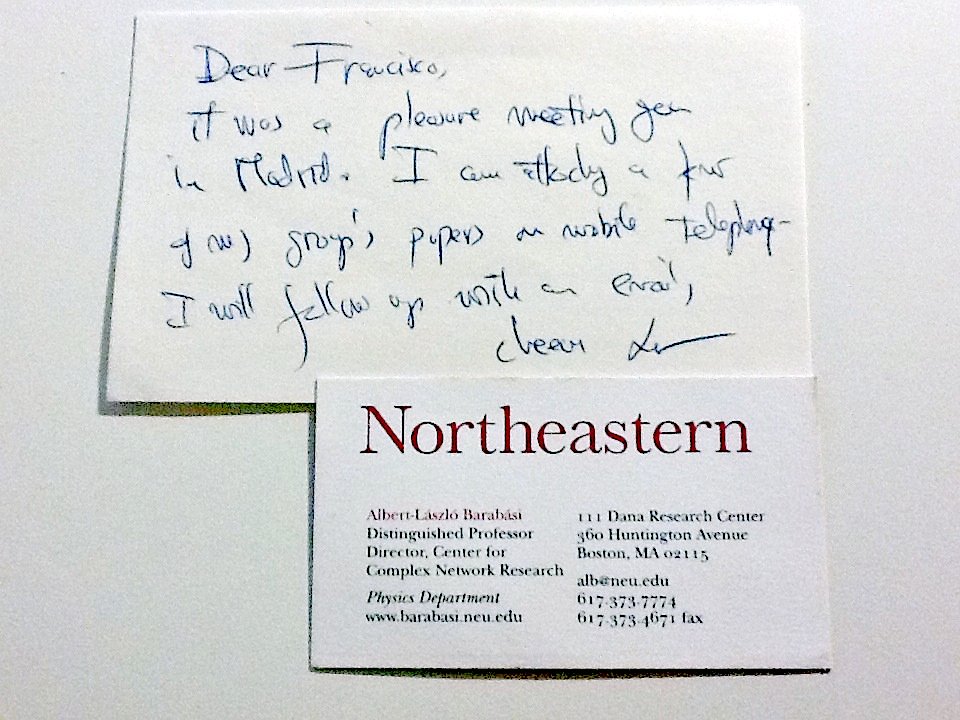 Dear Francisco,
it was a pleasure meeting you
in Madrid. I am a few
of my group's papers on mobile telephony.
I will follow up with an email,
Northeastern
Albert-László Barabási
Distinguished Professor
Director, Center for
Complex Network Research
Physics Department
www.barabasi.neu.edu
111 Dana Research Center
360 Huntington Avenue
Boston, MA 02115
alb@neu.edu
617-373-7774
617-373-4671 fax